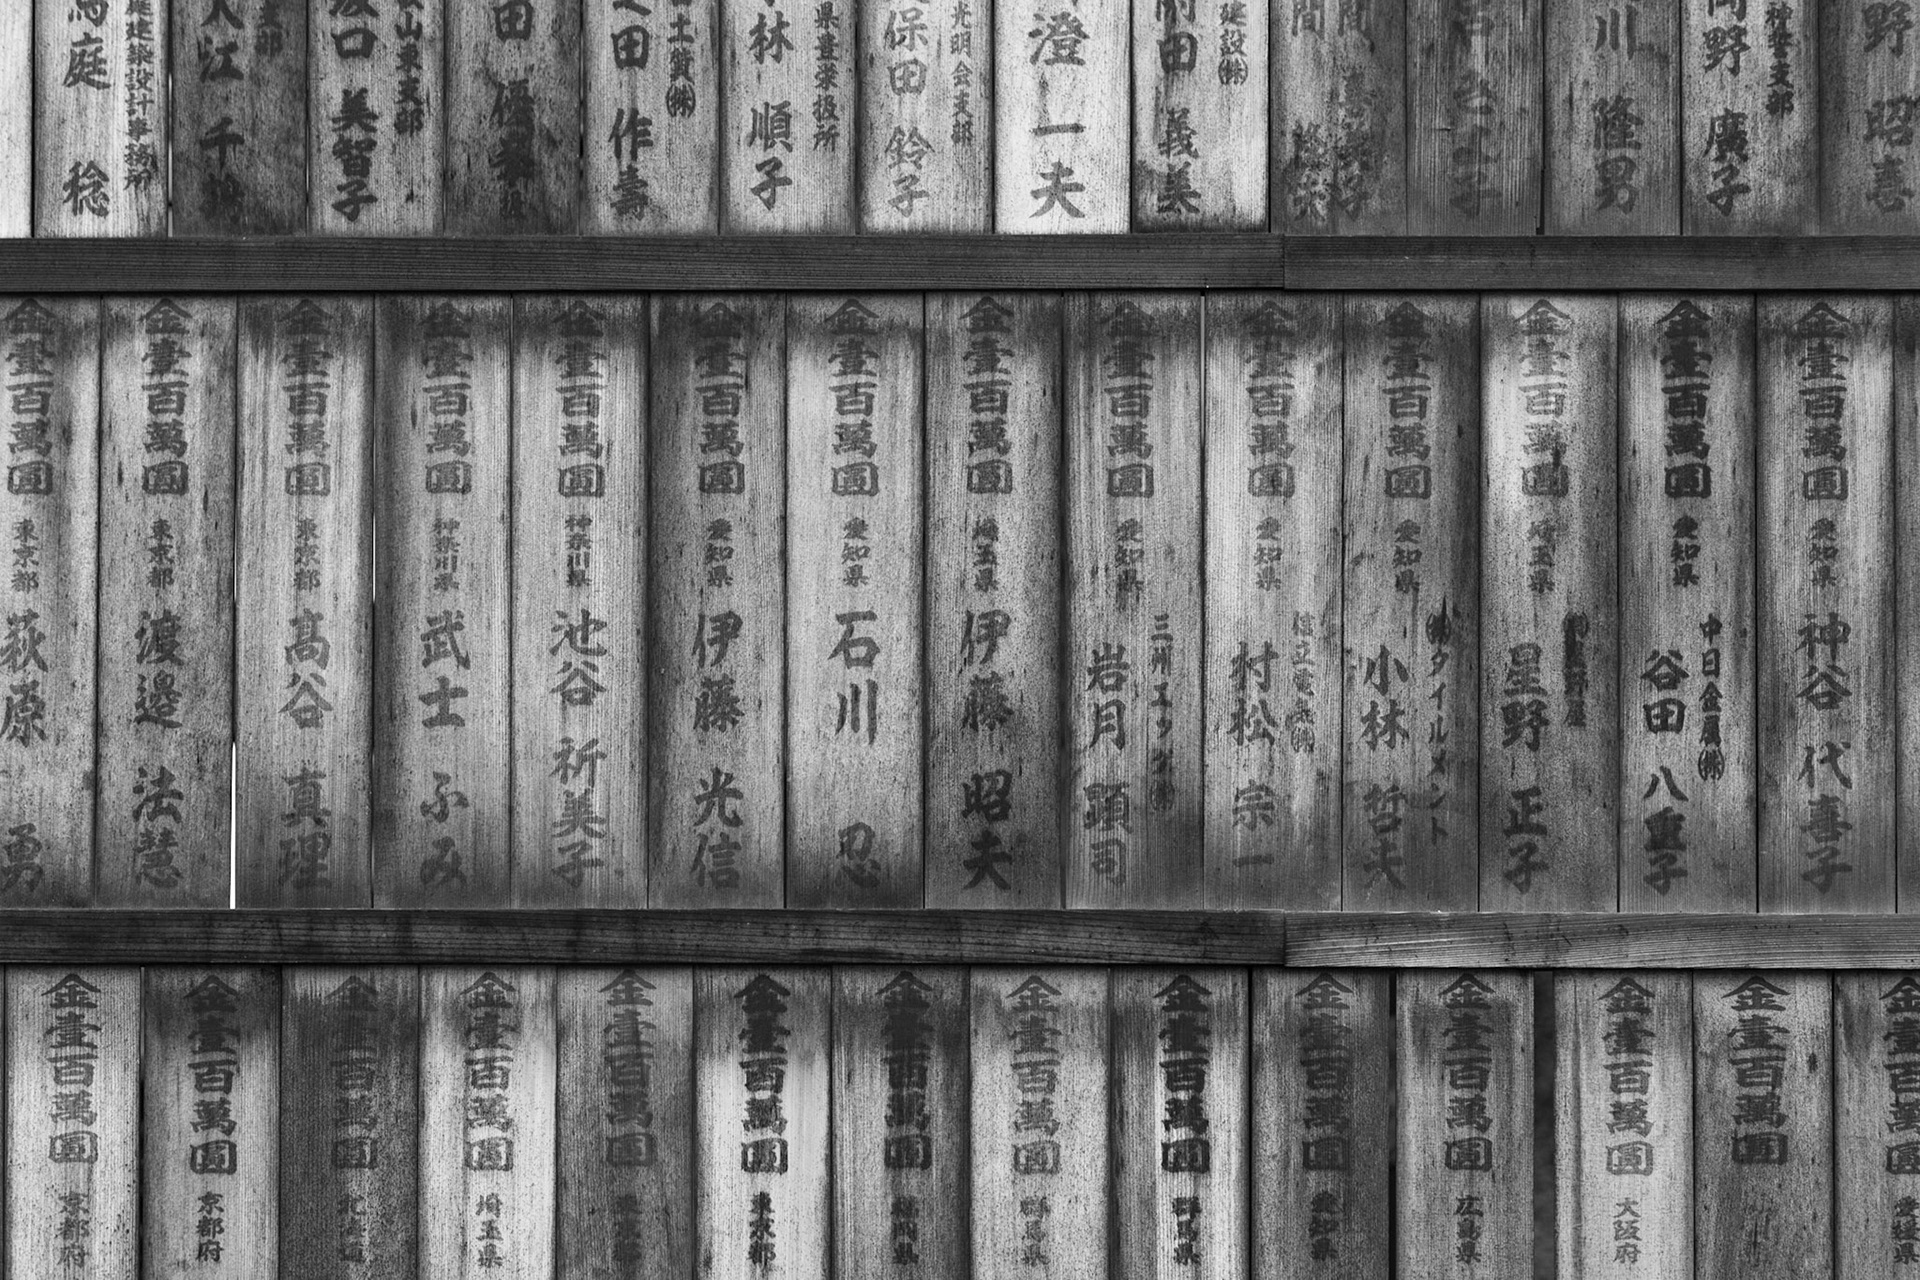 野 昭喜
支部
野 廣子
川 隆男
建設㈱
田 義美
澄 一夫
光明会支部
保田 鈴子
扱所
林 順子
土質㈱
田 作壽
田 優
山東支部
口 美智子
江 千
建築設計事務所
庭 稔
金壹百萬圓 愛知県 神谷 代喜子
金壹百萬圓 愛知県 中日金属㈱
谷田 八重子
金壹百萬圓 埼玉県
星野 正子
金壹百萬圓 愛知県 ㈱タイルメント
小林 哲夫
金壹百萬圓 愛知県
村松 宗一
金壹百萬圓 愛知県 三州エック㈱
岩月 顕司
金壹百萬圓 埼玉県 伊藤 昭夫
金壹百萬圓 愛知県 石川 忍
金壹百萬圓 愛知県 伊藤 光信
金壹百萬圓 神奈川県 池谷 祈美子
金壹百萬圓 神奈川県 武士 ふみ
金壹百萬圓 東京都 髙谷 真理
金壹百萬圓 東京都 渡邊 法慧
金壹百萬圓 東京都 萩原 勇
金壹百萬圓 愛媛県
金壹百萬圓
金壹百萬圓 大阪府
金壹百萬圓 広島県
金壹百萬圓 愛知県
金壹百萬圓 群馬県
金壹百萬圓 群馬県
金壹百萬圓 福岡県
金壹百萬圓 東京都
金壹百萬圓
金壹百萬圓 埼玉県
金壹百萬圓 北海道
金壹百萬圓 京都府
金壹百萬圓 京都府